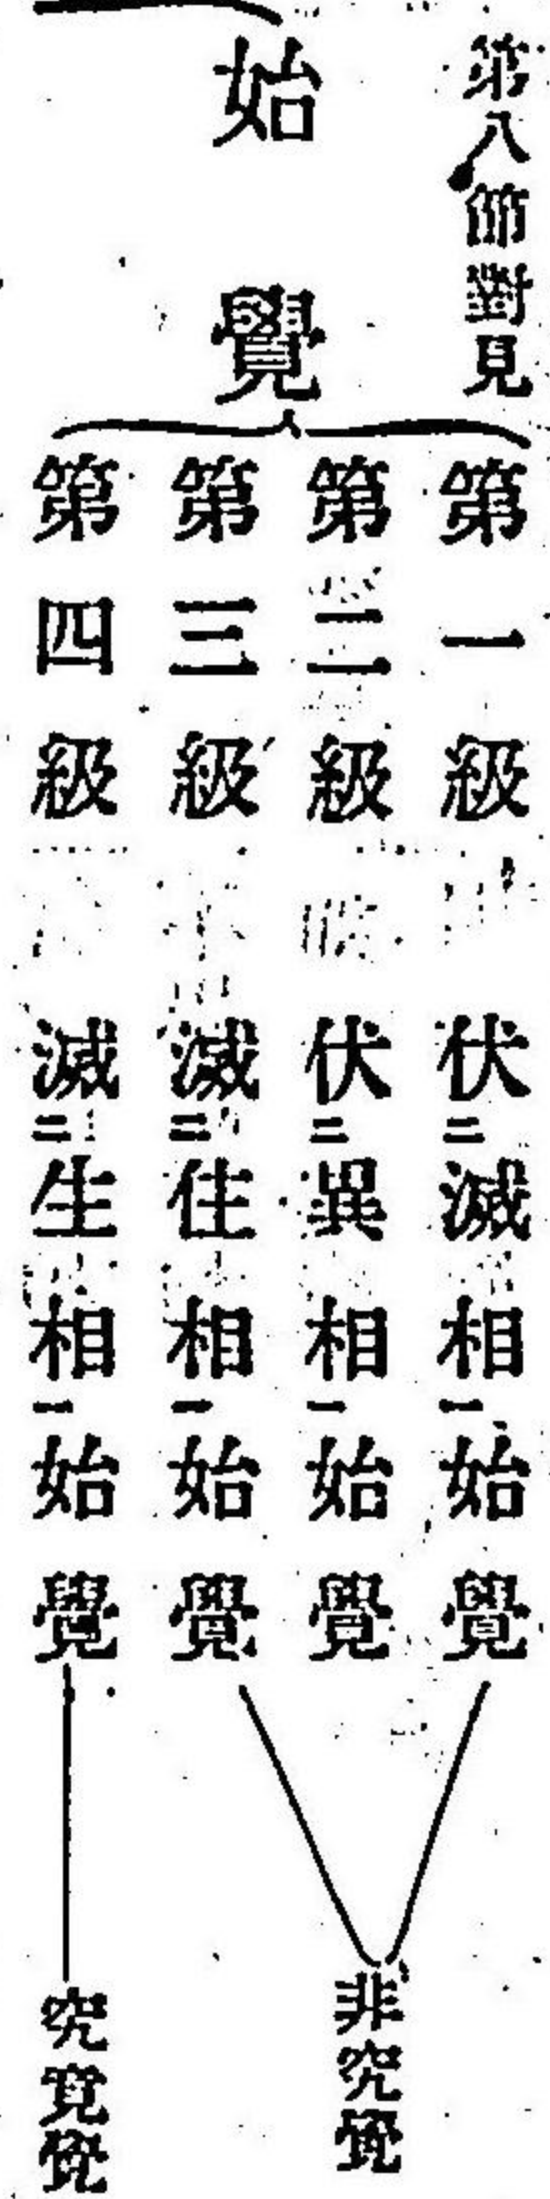 第八節對見
始覺
第一級 伏二滅相一始覺
第二級 伏二異相一始覺
第三級 滅二住相一始覺
第四級 滅二生相一始覺
非究覺
究竟覺